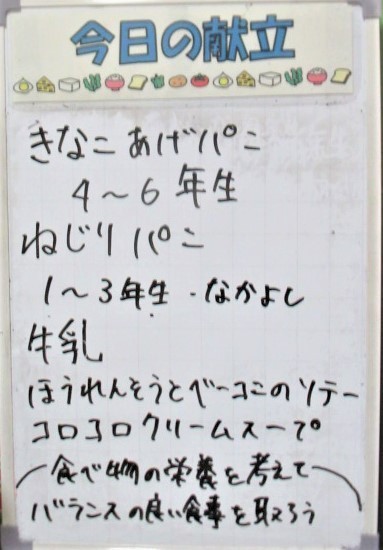 今日の献立
きなこあげパン
4～6年生
ねじりパン
1～3年生・なかよし
牛乳
ほうれんそうとベーコンのソテー
コロコロクリームスープ
食べ物の栄養を考えて
バランスの良い食事を取ろう